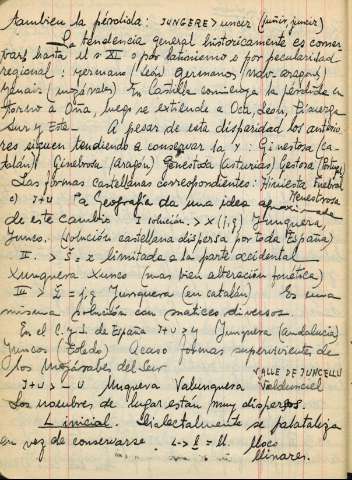 tambien la pérdida: JUNGERE > uncer (juñir, juncer)
La tendencia general historicamente es conser
var hasta el s XI o por latinismo o por peculiaridad
regional: Germano (León) Germanos (Nav. aragon)
(mozarabes) En Castilla comienza la pérdida en
torno a Oña, luego se extiende a Oca, León, Pisuerga
Sur y Este - A pesar de esta disparidad los autori
res siguen tendiendo a conservar la Y: Ginestora (ca
talán) Ginebrosa (aragón) Genestoda (asturias) Gestosa (Portugal)
Las formas castellanas correspondientes: Hiniesta Enebral
Henestrosa
c) J + U La Geografía da una idea aproximada
de este cambio I solución > X (j, g) Junquera,
Junco. (solución castellana dispersa por toda España)
II. > Š = x limitada a la parte occidental
Xunqueira Xunco (mas bien alteración fonética)
III > Ž = j, g Junquera (en catalán) Es una
misma solución con matices diversos
En el C. y S. de España J + U > y Yunquera (andalucia)
Yuncos (Toledo) Acaso formas supervivientes de
los Mozárabes del Sur
VALLE DE JUNCELLU
J + U > - U Unquera Valunquera Valdunciel
Los nombres de lugar están muy dispersos.
L inicial. Dialectalmente se palataliza
en vez de conservarse. L -> l = ll. lloco
llinares.